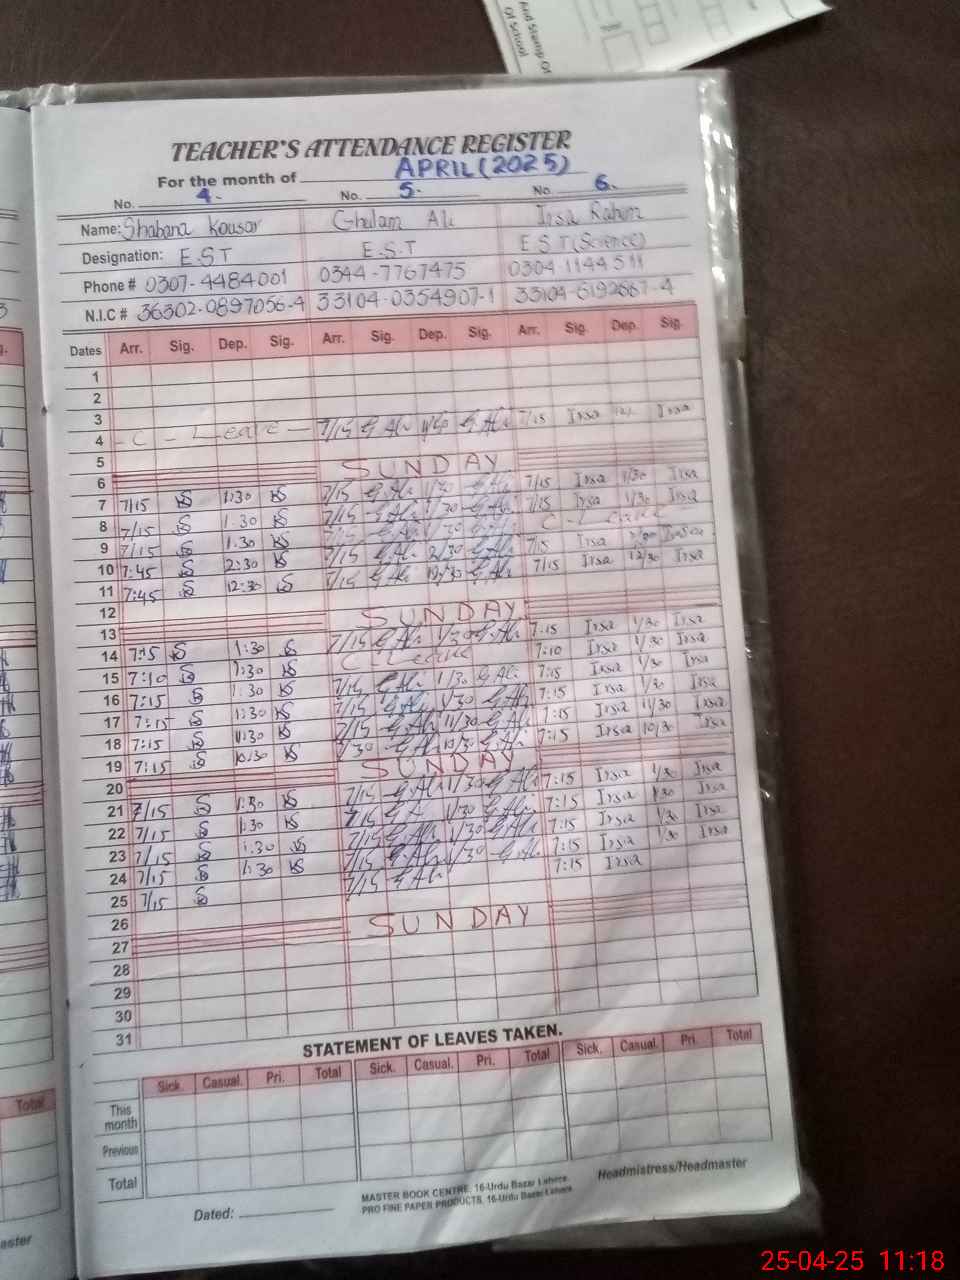 And Stamp Of
Of School
TEACHER'S ATTENDANCE REGISTER
For the month of APRIL (2025)
No. 4. No. 5. No. 6.
Name: Shabana Kousar Ghulam Ali Irsa Rahim
Designation: E.ST E.S.T E.S.T (Science)
Phone # 0307-4484001 0344-7767475 0304-1144511
N.I.C # 36302-0897056-4 33104-0354907-1 33104-6192667-4
Dates Arr. Sig. Dep. Sig. Arr. Sig. Dep. Sig. Arr. Sig. Dep. Sig.
1
2
3
4 - C - Leave - 7/15 G Ali G Ali 7/15 Irsa Irsa
5 SUNDAY
6
7 7/15 1:30 7/15 G.Ali 1/30 G.Ali 7/15 Irsa 1/30 Irsa
8 7/15 1.30 7/15 G.Ali 1/30 G.Ali 7/15 Irsa 1/30 Irsa
9 7/15 1.30 7/15 G.Ali 1/30 G.Ali C - Leave
10 7:45 2:30 7/15 G.Ali 2/30 G.Ali 7/15 Irsa Irsa
11 7:45 12:30 7/15 G.Ali 12/30 G.Ali 7/15 Irsa 12/30 Irsa
12 SUNDAY
13
14 7:15 1:30 7/15 G.Ali 1/30 G.Ali 7:15 Irsa 1/30 Irsa
15 7:10 1:30 C-Leave 7:10 Irsa 1/30 Irsa
16 7:15 1:30 7/15 G.Ali 1/30 G.Ali 7:15 Irsa 1/30 Irsa
17 7:15 1:30 7/15 G.Ali 1/30 G.Ali 7:15 Irsa 1/30 Irsa
18 7:15 11:30 7/15 G.Ali 11/30 G.Ali 7:15 Irsa 11/30 Irsa
19 7:15 10:30 G.Ali 10/30 G.Ali 7:15 Irsa 10/30 Irsa
20 SUNDAY
21 7/15 1:30 7/15 G.Ali 1/30 G.Ali 7:15 Irsa 1/30 Irsa
22 7/15 1:30 7/15 G.Ali 1/30 G.Ali 7:15 Irsa 1/30 Irsa
23 7/15 1:30 7/15 G.Ali 1/30 G.Ali 7:15 Irsa 1/30 Irsa
24 7/15 1:30 7/15 G.Ali 1/30 G.Ali 7:15 Irsa 1/30 Irsa
25 7/15 7/15 G.Ali 7:15 Irsa
26 SUNDAY
27
28
29
30
31
STATEMENT OF LEAVES TAKEN.
Sick. Casual. Pri. Total Sick. Casual. Pri. Total Sick. Casual. Pri. Total
This month
Previous
Total
Total
Dated:
MASTER BOOK CENTRE, 16-Urdu Bazar Lahore.
PRO FINE PAPER PRODUCTS, 16-Urdu Bazar Lahore.
Headmistress/Headmaster
25-04-25 11:18